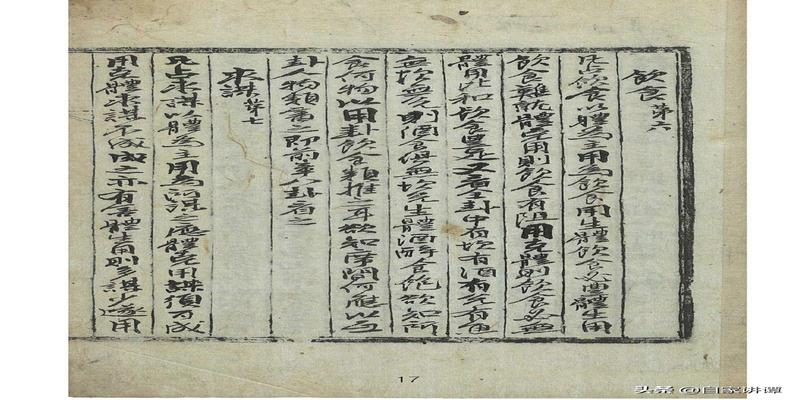 飲食 第六
凡占飲食以體為主用為飲食用生體飲食必豊體生用
飲食難就體克用則飲食有阻用克體則飲食必無
體用比和飲食豊足又看全卦中有坎有酒有兌有食
無坎無兌則酒食俱無坎兌生體酒醉食飽欲知所
食何物以用卦飲食類推之耳欲知席間何應以互
卦人物類看之即前章八卦看之
求謀 第七
凡占求謀以體為主用為所謀之應體克用謀須可成
用克體求謀不成成之亦有害體生用則多謀少遂用
17
头条 @自家讲谭